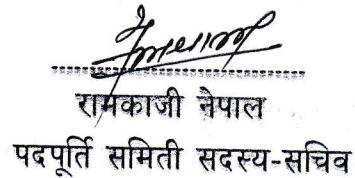 रामकाजी नेपाल
पदपूर्ति समिती सदस्य-सचिव